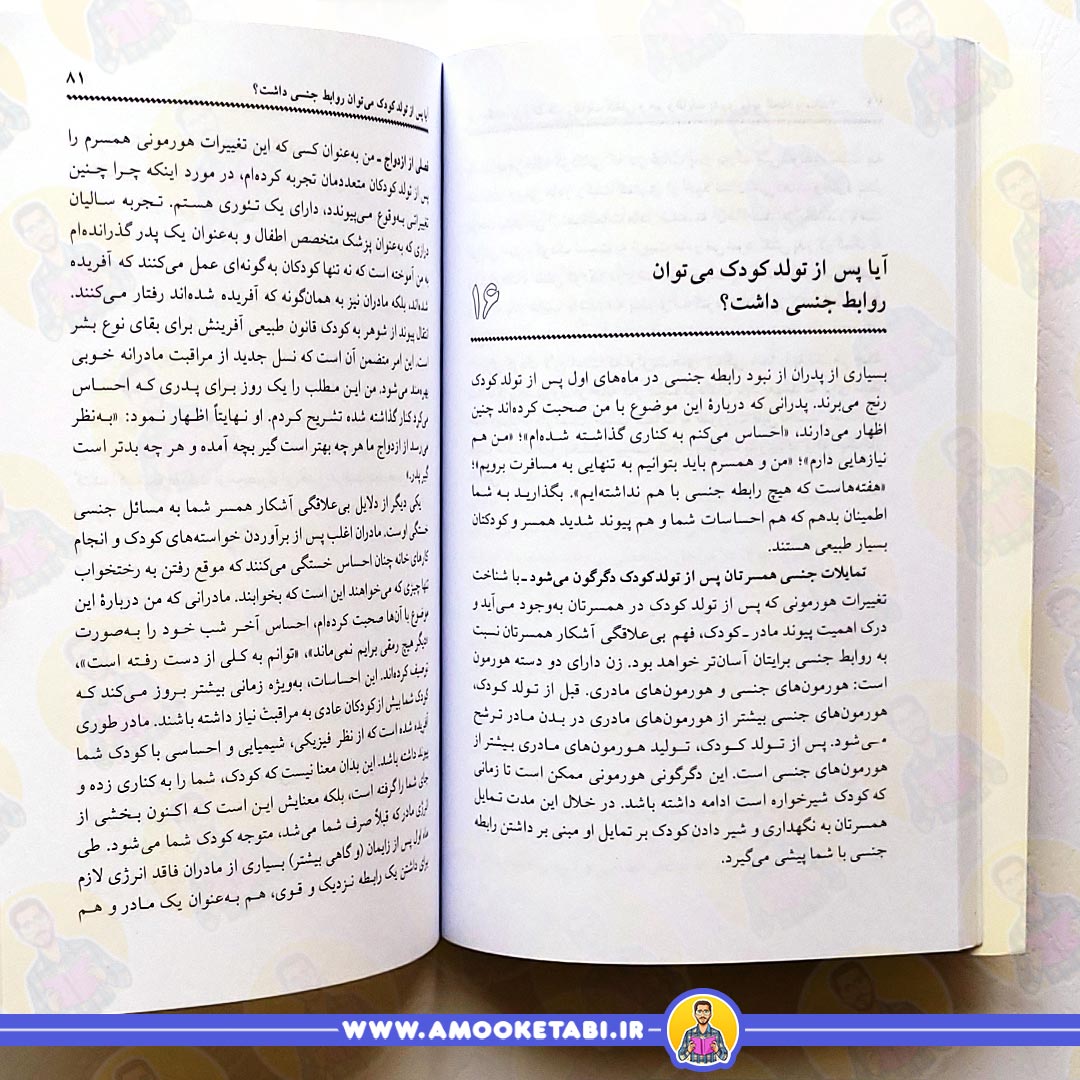 آیا پس از تولد کودک می‌توان
روابط جنسی داشت؟
۱۶
بسیاری از پدران از نبود رابطه جنسی در ماه‌های اول پس از تولد کودک
رنج می‌برند. پدرانی که دربارهٔ این موضوع با من صحبت کرده‌اند چنین
اظهار می‌دارند، «احساس می‌کنم به کناری گذاشته شده‌ام»؛ «من هم
نیازهایی دارم»؛ «من و همسرم باید بتوانیم به تنهایی به مسافرت برویم»؛
«هفته‌هاست که هیچ رابطه جنسی با هم نداشته‌ایم». بگذارید به شما
اطمینان بدهم که هم احساسات شما و هم پیوند شدید همسر و کودکتان
بسیار طبیعی هستند.
تمایلات جنسی همسرتان پس از تولد کودک دگرگون می‌شود ـ با شناخت
تغییرات هورمونی که پس از تولد کودک در همسرتان به‌وجود می‌آید و
درک اهمیت پیوند مادر ـ کودک، فهم بی‌علاقگی آشکار همسرتان نسبت
به روابط جنسی برایتان آسان‌تر خواهد بود. زن دارای دو دسته هورمون
است: هورمون‌های جنسی و هورمون‌های مادری. قبل از تولد کودک،
هورمون‌های جنسی بیشتر از هورمون‌های مادری در بدن مادر ترشح
می‌شود. پس از تولد کودک، تولید هورمون‌های مادری بیشتر از
هورمون‌های جنسی است. این دگرگونی هورمونی ممکن است تا زمانی
که کودک شیرخواره است ادامه داشته باشد. در خلال این مدت تمایل
همسرتان به نگهداری و شیر دادن کودک بر تمایل او مبنی بر داشتن رابطه
جنسی با شما پیشی می‌گیرد.
آیا پس از تولد کودک می‌توان روابط جنسی داشت؟ ۸۱
فصلی از ازدواج ـ من به‌عنوان کسی که این تغییرات هورمونی همسرم را
پس از تولد کودکان متعددمان تجربه کرده‌ام، در مورد اینکه چرا چنین
تغییراتی به‌وقوع می‌پیوندد، دارای یک تئوری هستم. تجربه سالیان
درازی که به‌عنوان پزشک متخصص اطفال و به‌عنوان یک پدر گذرانده‌ام
به من آموخته است که نه تنها کودکان به‌گونه‌ای عمل می‌کنند که آفریده
شده‌اند، بلکه مادران نیز به همان‌گونه که آفریده شده‌اند رفتار می‌کنند.
انتقال پیوند از شوهر به کودک قانون طبیعی آفرینش برای بقای نوع بشر
است. این امر متضمن آن است که نسل جدید از مراقبت مادرانه خوبی
بهره‌مند می‌شود. من این مطلب را یک روز برای پدری که احساس
می‌کرد کنار گذاشته شده تشریح کردم. او نهایتاً اظهار نمود: «به‌نظر
می‌رسد از ازدواج ما هر چه بهتر است گیر بچه آمده و هر چه بدتر است
گیر پدر.»
یکی دیگر از دلایل بی‌علاقگی آشکار همسر شما به مسائل جنسی
خستگی اوست. مادران اغلب پس از برآوردن خواسته‌های کودک و انجام
کارهای خانه چنان احساس خستگی می‌کنند که موقع رفتن به رختخواب
تنها چیزی که می‌خواهند این است که بخوابند. مادرانی که من دربارهٔ این
موضوع با آن‌ها صحبت کرده‌ام، احساس آخر شب خود را به‌صورت
«دیگر هیچ رمقی برایم نمی‌ماند»، «توانم به کلی از دست رفته است»،
توصیف کرده‌اند. این احساسات، به‌ویژه زمانی بیشتر بروز می‌کند که
کودک شما بیش از کودکان عادی به مراقبت نیاز داشته باشند. مادر طوری
آفریده شده است که از نظر فیزیکی، شیمیایی و احساسی با کودک شما
پیوند داشته باشد. این بدان معنا نیست که کودک، شما را به کناری زده و
جای شما را گرفته است، بلکه معنایش این است که اکنون بخشی از
انرژی مادر که قبلاً صرف شما می‌شد، متوجه کودک شما می‌شود. طی
ماه اول پس از زایمان (و گاهی بیشتر) بسیاری از مادران فاقد انرژی لازم
برای داشتن یک رابطه نزدیک و قوی، هم به‌عنوان یک مادر و هم
WWW.AMOOKETABI.IR